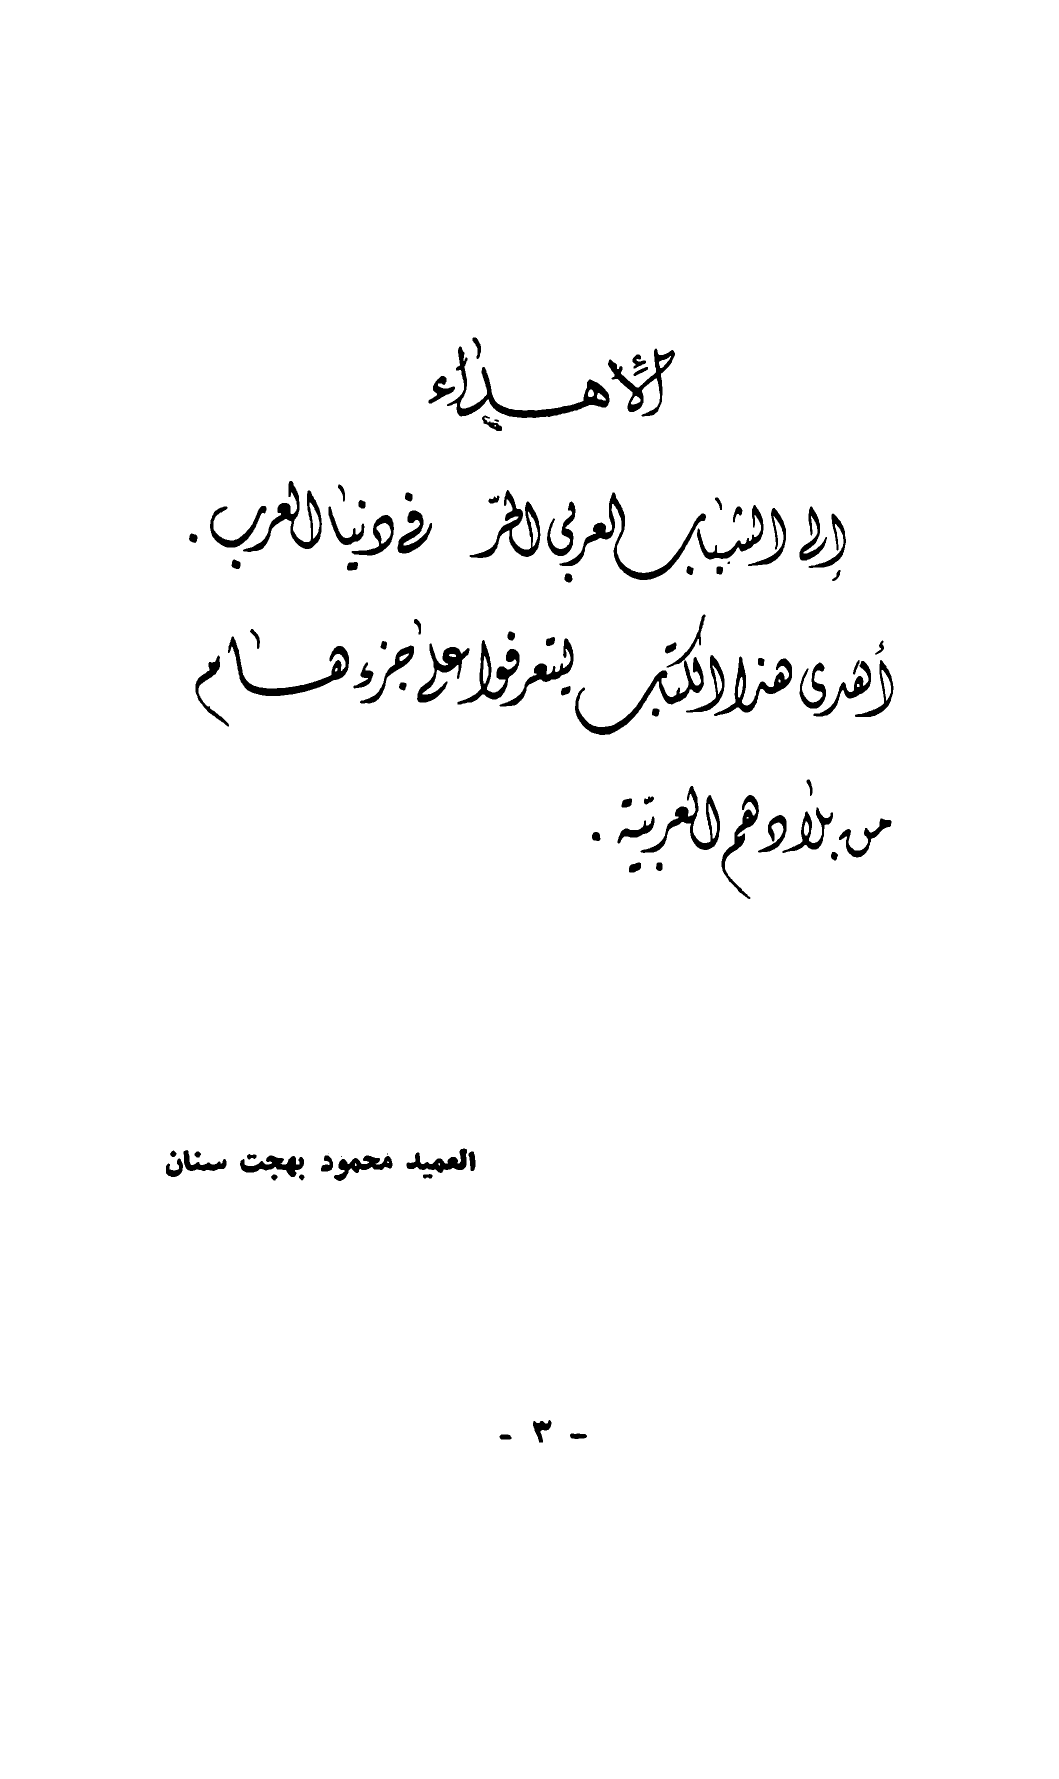 الأهداء
إلى الشباب العربي الحرّ في دنيا العرب .
أهدى هذا الكتاب ليتعرفوا على جزء هام
من بلادهم العربيّة .
العميد محمود بهجت سنان
- ٣ -